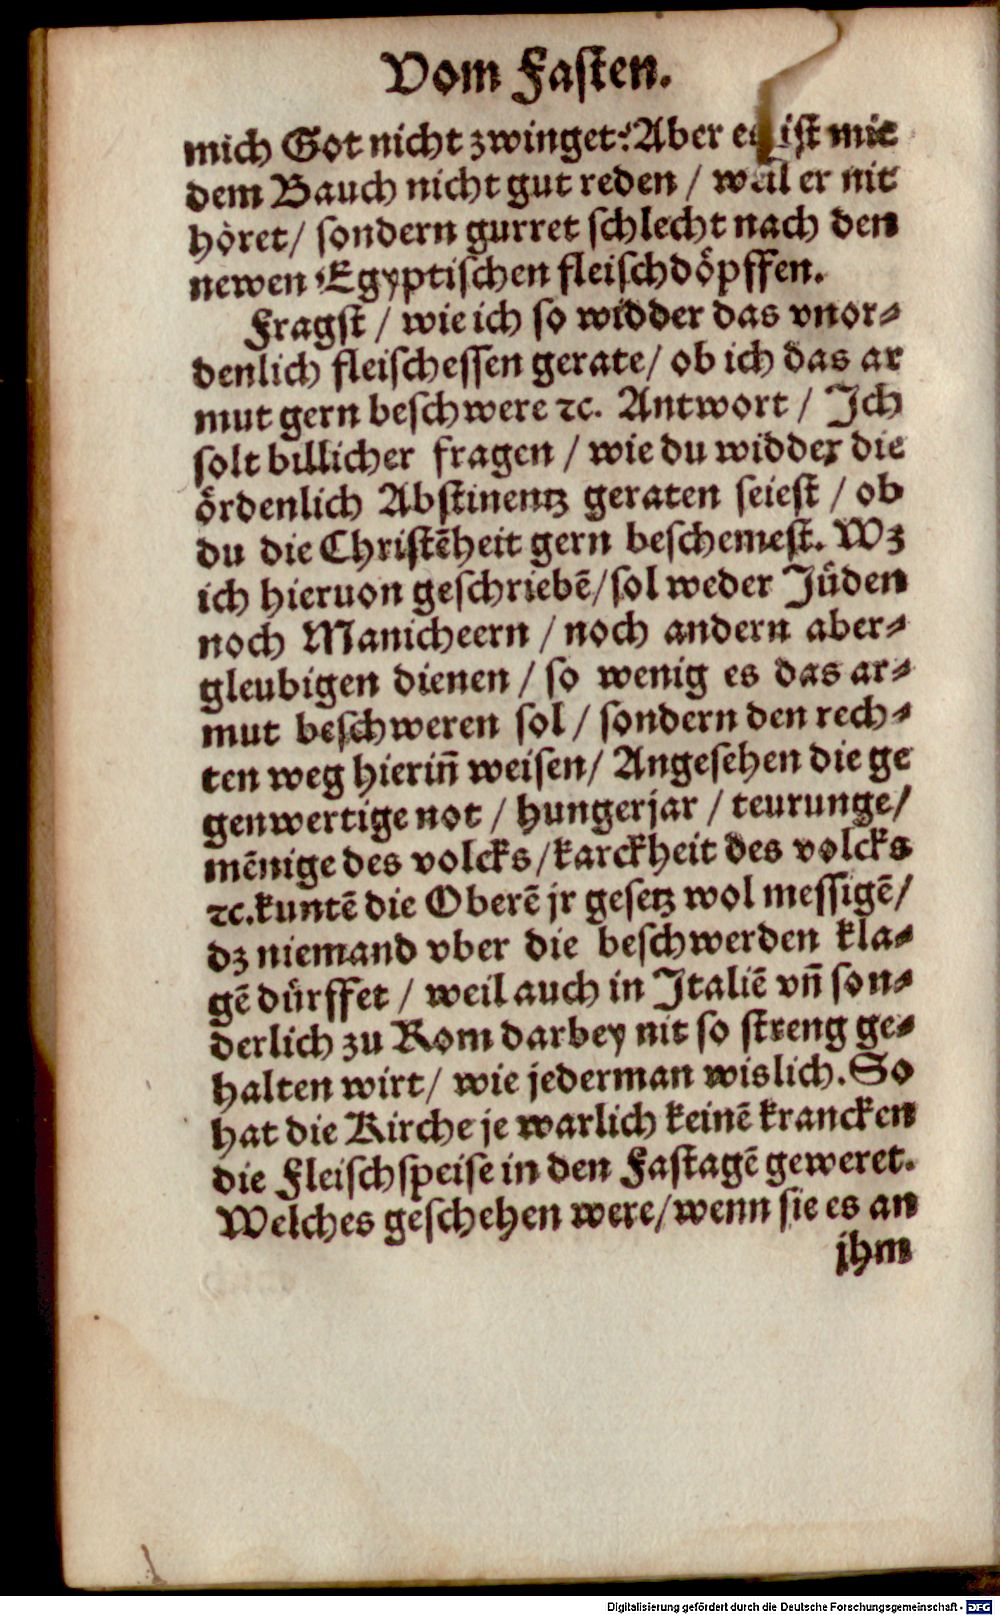 Vom Fasten.
mich Got nicht zwinget? Aber es ist mit
dem Bauch nicht gut reden / weil er nit
höret / sondern gurret schlecht nach den
newen Egyptischen fleischdöpffen.
Fragst / wie ich so widder das vnor⸗
denlich fleischessen gerate / ob ich das ar
mut gern beschwere ꝛc. Antwort / Ich
solt billicher fragen / wie du widder die
ördenlich Abstinentz geraten seiest / ob
du die Christēheit gern beschemest. Wz
ich hieruon geschriebē / sol weder Jüden
noch Manicheern / noch andern aber⸗
gleubigen dienen / so wenig es das ar⸗
mut beschweren sol / sondern den rech⸗
ten weg hierin̄ weisen / Angesehen die ge
genwertige not / hungerjar / teurunge /
mēnige des volcks / karckheit des volcks
ꝛc. kuntē die Oberē jr gesetz wol messigē /
dz niemand vber die beschwerden kla⸗
gē dürffet / weil auch in Italiē vn̄ son⸗
derlich zu Rom darbey nit so streng ge⸗
halten wirt / wie jederman wislich. So
hat die Kirche je warlich keinē krancken
die Fleischspeise in den Fastagē geweret.
Welches geschehen were / wenn sie es an
jhm
Digitalisierung gefördert durch die Deutsche Forschungsgemeinschaft - DFG